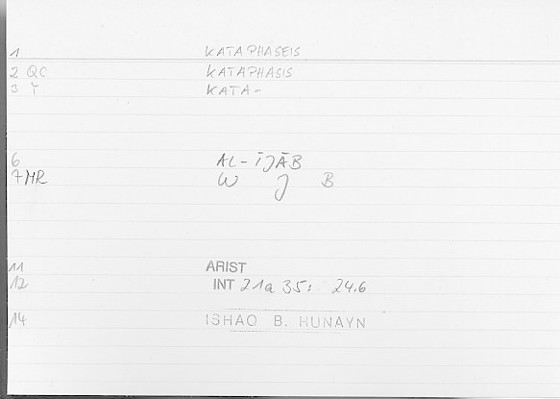 1 KATAPHASEIS
2 QC KATAPHASIS
3 Y KATA-
6 AL-ĪJĀB
7 MR W J B
11 ARIST
12 INT 21a 35: 24.6
14 ISHAQ B. HUNAYN